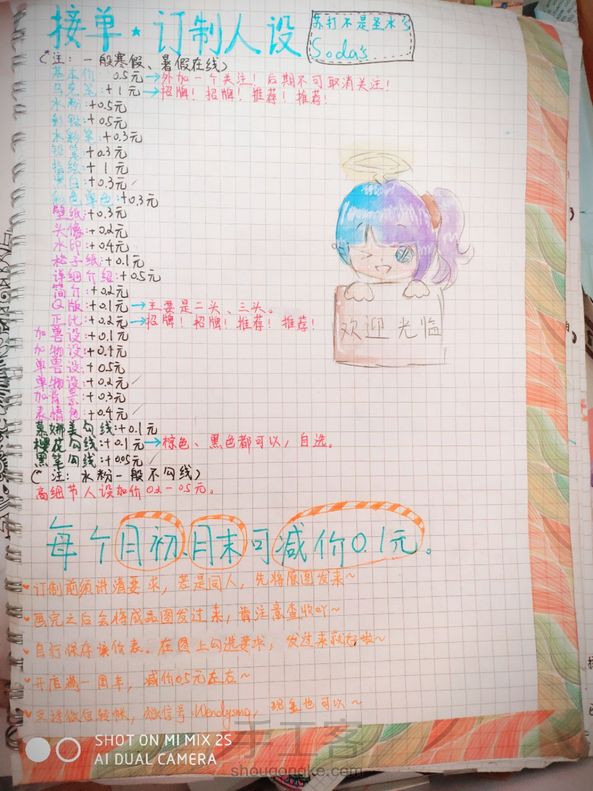 接单★订制人设
苏打不是圣水兮
Sodas
(*注：一般寒假、暑假在线)
基本价 0.5元→外加一个关注！后期不可取消关注！
马克笔:+1元→招牌！招牌！推荐！推荐！
水粉:+0.5元
彩铅:+0.5元
水彩笔:+0.3元
铅笔:+0.3元
指绘:+1元
黑白:+0.3元
彩色单色:+0.3元
壁纸:+0.3元
头像:+0.2元
水印:+0.4元
格子纸:+0.1元
详细介绍:+0.5元
简介:+0.2元
Q版:+0.1元→主要是二头、三头。
正比:+0.2元→招牌！招牌！推荐！推荐！
加兽设:+0.1元
加物设:+0.1元
单兽设:+0.5元
单物设:+0.2元
加背景:+0.3元
表情包:+0.4元
慕娜美勾线:+0.1元
樱花勾线:+0.1元→棕色、黑色都可以，自选。
黑笔勾线:+0.05元
(*注：水粉一般不勾线)
高细节人设加价0.2-0.5元。
欢迎光临
每个月初、月末可减价0.1元。
订制前须讲清要求，若是同人，先将原图发来~
画完之后会将成品图发过来，请注意查收吖~
自行保存该价表。在图上勾选要求，发过来就好啦~
开店满一周年，减价0.5元左右~
只接微信转帐，微信号:Wendyyang，现金也可以~
SHOT ON MI MIX 2S
AI DUAL CAMERA
手工客
shougongke.com